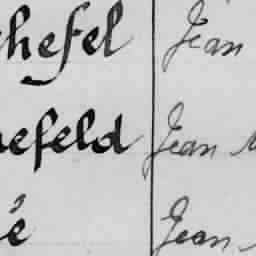 chefel Jean
efeld Jean
é Jean